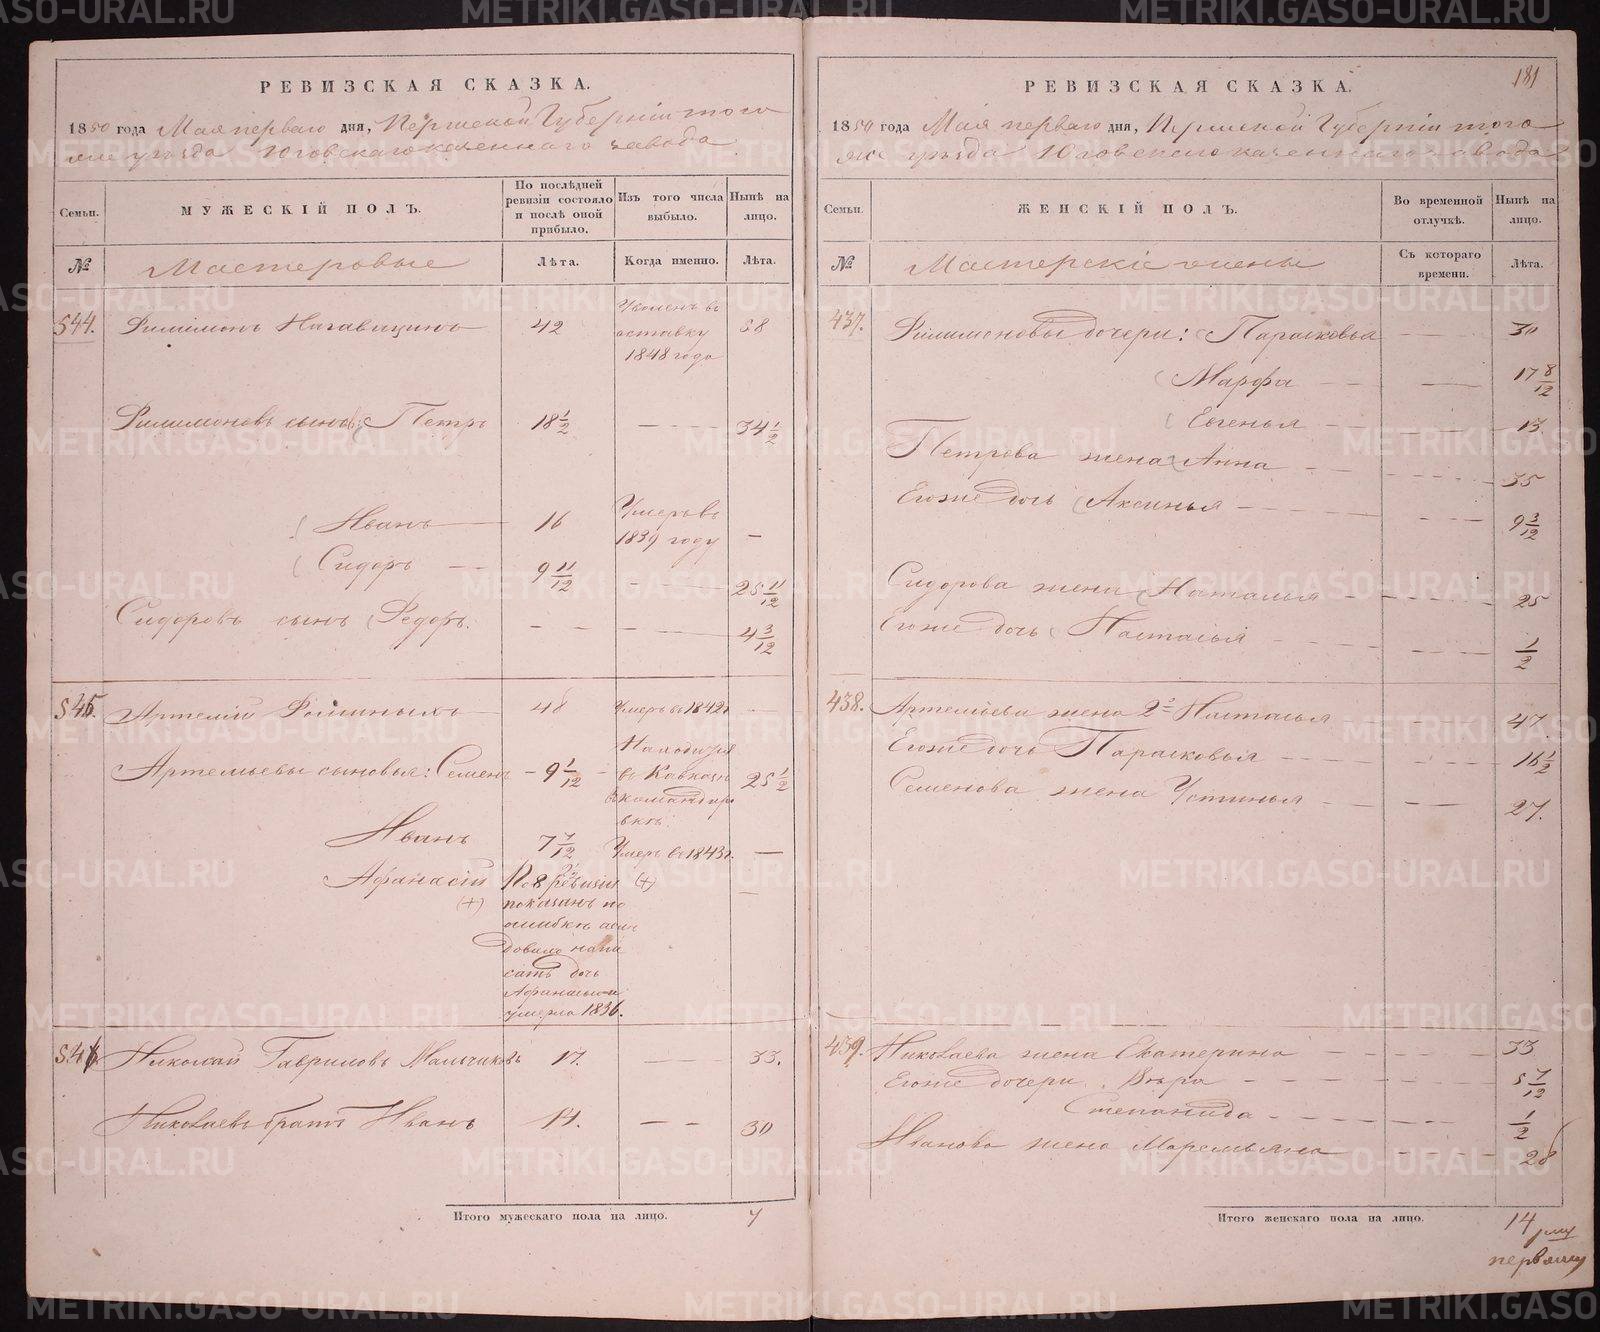 РЕВИЗСКАЯ СКАЗКА.
1850 года Мая перваго дня, Пермской Губернiи того
же уѣзда Юговскаго казеннаго завода
Семьи.
МУЖЕСКIЙ ПОЛЪ.
По послѣдней ревизiи состояло и послѣ оной прибыло.
Изъ того числа выбыло.
Нынѣ на лицо.
№
Мастеровые
Лѣта.
Когда именно.
Лѣта.
544. Филимонъ Нагавицинъ 42 Уволенъ въ отставку 1848 года 58
Филимоновъ сынъ Петръ 18 1/2 — — — 34 1/2
Иванъ 16 Умеръ въ 1839 году —
Сидоръ 9 11/12 — — — 25 11/12
Сидоровъ сынъ Федоръ. — — — — 4 3/12
545. Артемiй 48 Умеръ въ 1842 г. —
Артемьевы сыновья: Семенъ 9 1/12 Находится въ командировкѣ 25 1/2
Иванъ 7 7/12 Умеръ въ 1843 г. —
Афанасiй (+) По 8 ревизiи показанъ по ошибкѣ а слѣдовало написать дочь Афанасья умерла 1836. (+) —
546 Николай Гавриловъ Мальчиковъ 17. — — 33.
Николаевъ братъ Иванъ 14. — — 30
Итого мужескаго пола на лицо. 7
181
РЕВИЗСКАЯ СКАЗКА.
1850 года Мая перваго дня, Пермской Губернiи того
же уѣзда Юговскаго казеннаго завода
Семьи.
ЖЕНСКIЙ ПОЛЪ.
Во временной отлучкѣ.
Нынѣ на лицо.
№
Мастерскiе жены
Съ котораго времени.
Лѣта.
437. Филимоновы дочери: Парасковья — — 30
Марфа — — 17 8/12
Евгенья — — 13
Петрова жена Анна — — 35
Его же дочь Аксинья — — 9 3/12
Сидорова жена Наталья — — 25
Его же дочь Настасья — — 1/2
438. Артемьева жена 2я Настасья — — 47.
Его же дочь Парасковья — — 16 1/2
Семенова жена Устинья — — 27.
439. Николаева жена Екатерина — — 33
Его же дочери Вѣра — — 5 7/12
Степанида — — 1/2
Иванова жена Маремьяна — — 28
Итого женскаго пола на лицо. 14
METRIKI.GASO-URAL.RU